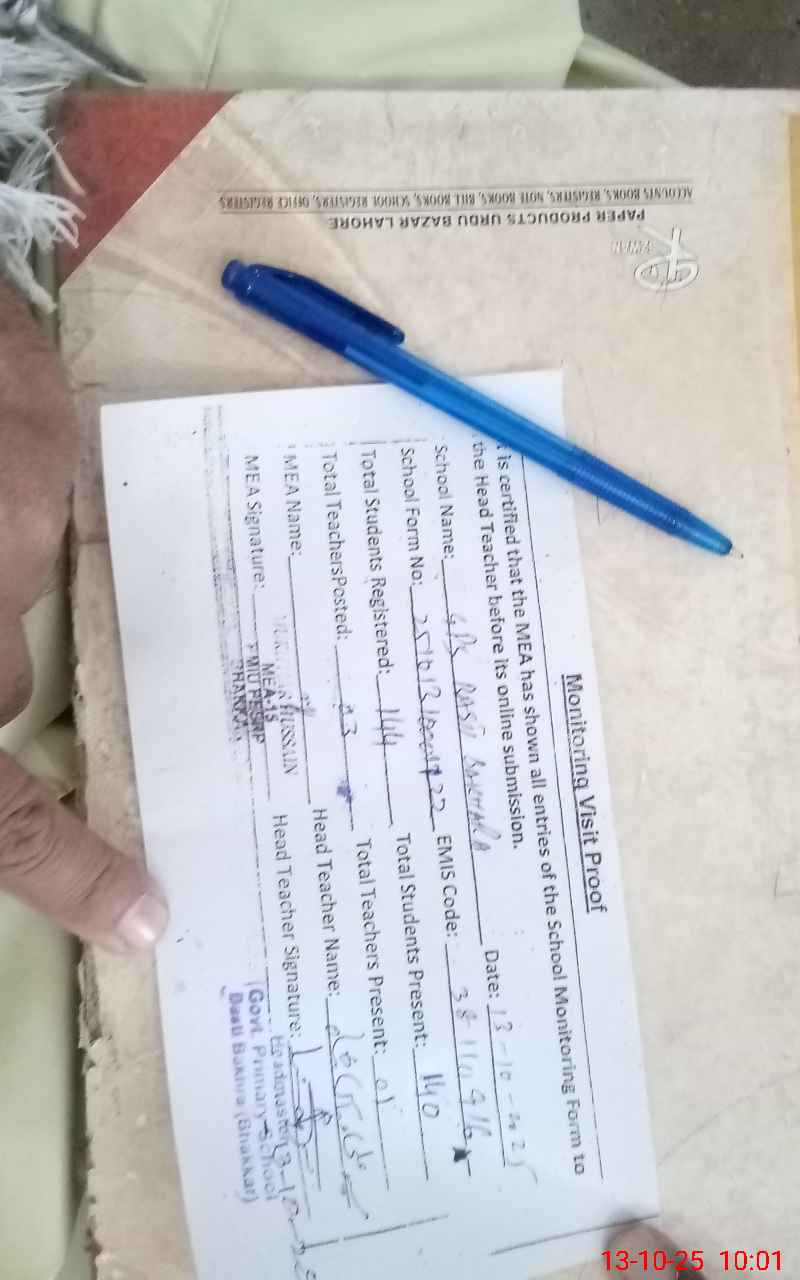 PAPER PRODUCTS URDU BAZAR LAHORE
ACCOUNTS BOOKS, REGISTERS, NOTE BOOKS, BILL BOOKS, SCHOOL REGISTERS, OFFICE REGISTERS
Monitoring Visit Proof
is certified that the MEA has shown all entries of the School Monitoring Form to
the Head Teacher before its online submission.
Date: 13-10-2025
School Name: GPS
School Form No: EMIS Code:
Total Students Registered: 144 Total Students Present: 140
Total TeachersPosted: 03 Total Teachers Present:
MEA Name: HUSSAIN Head Teacher Name:
MEA Signature: Head Teacher Signature:
MEA-15
PMIU PESRP
BHAKKAR
Headmaster 13-10-
Govt. Primary School
Basti Bakhra (Bhakkar)
13-10-25 10:01